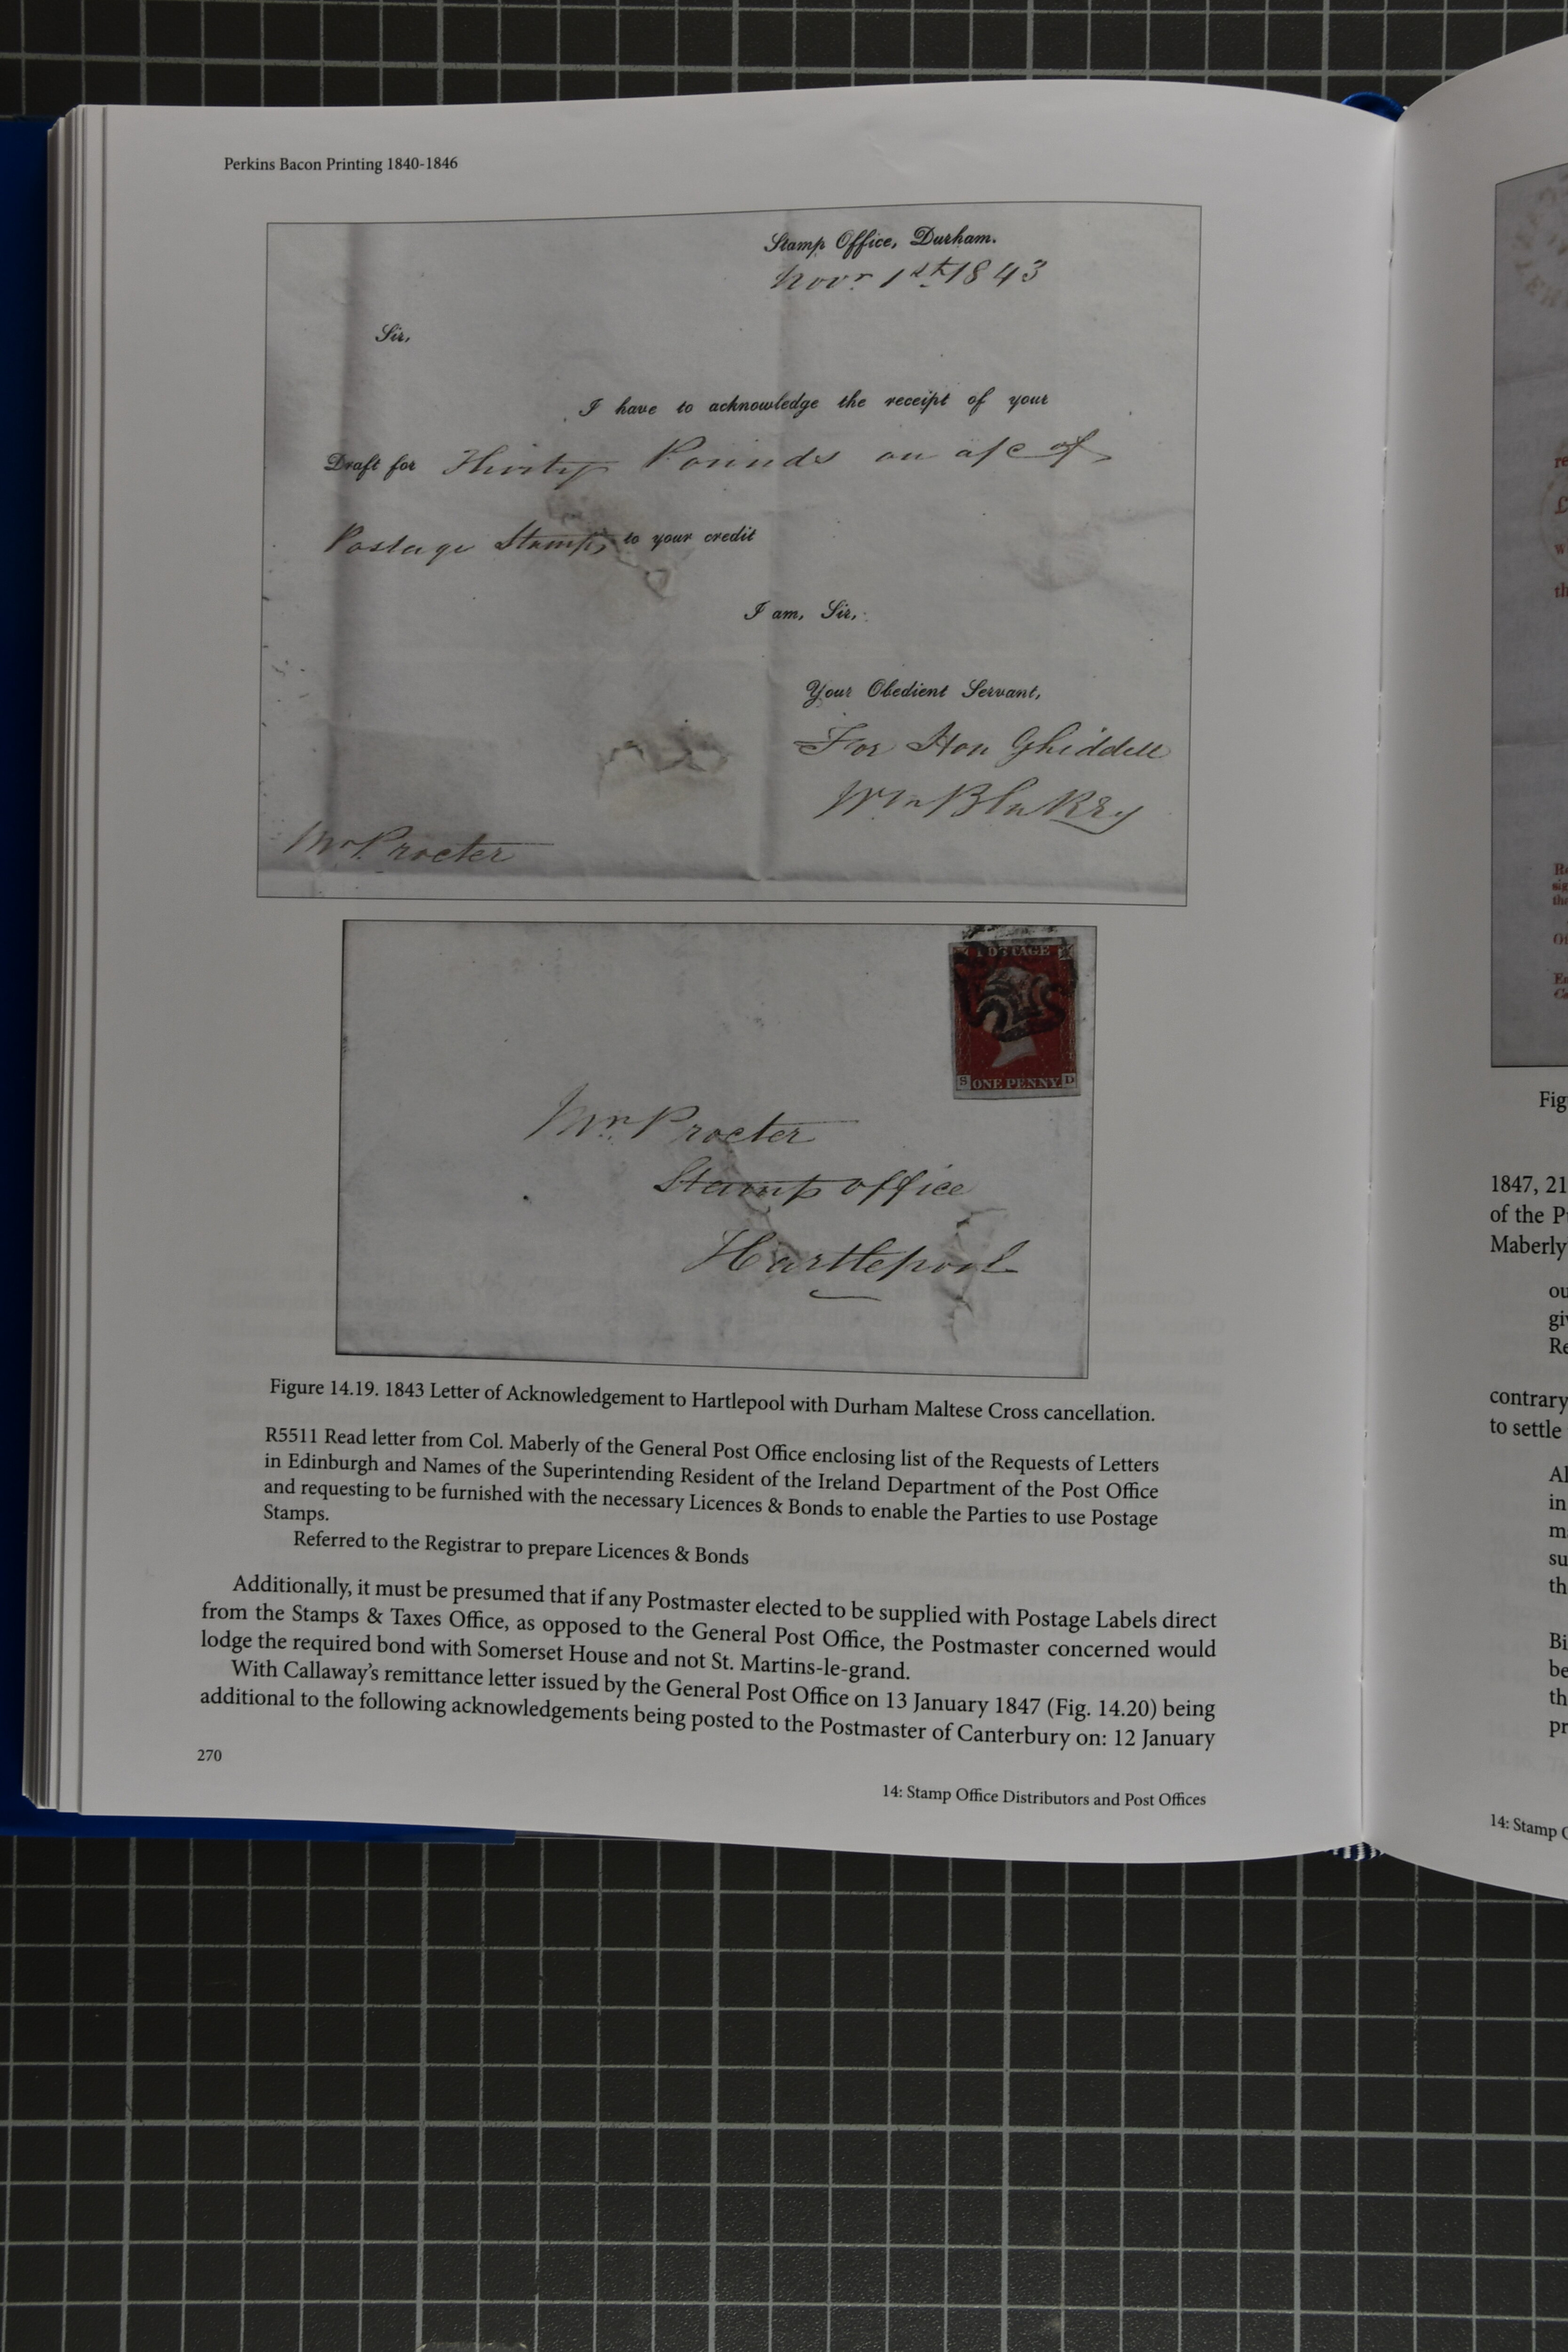 Perkins Bacon Printing 1840-1846
Stamp Office, Durham.
Novr 1st 1843
Sir,
I have to acknowledge the receipt of your
Draft for Thirty Pounds on a/c of
Postage Stamps to your credit
I am, Sir,
Your Obedient Servant,
For Hon
Wm Blakey
Mr Procter
POSTAGE
S ONE PENNY D
Mr. Procter
Stamp office
Hartlepool
Figure 14.19. 1843 Letter of Acknowledgement to Hartlepool with Durham Maltese Cross cancellation.
R5511 Read letter from Col. Maberly of the General Post Office enclosing list of the Requests of Letters
in Edinburgh and Names of the Superintending Resident of the Ireland Department of the Post Office
and requesting to be furnished with the necessary Licences & Bonds to enable the Parties to use Postage
Stamps.
Referred to the Registrar to prepare Licences & Bonds
Additionally, it must be presumed that if any Postmaster elected to be supplied with Postage Labels direct
from the Stamps & Taxes Office, as opposed to the General Post Office, the Postmaster concerned would
lodge the required bond with Somerset House and not St. Martins-le-grand.
With Callaway's remittance letter issued by the General Post Office on 13 January 1847 (Fig. 14.20) being
additional to the following acknowledgements being posted to the Postmaster of Canterbury on: 12 January
270
14: Stamp Office Distributors and Post Offices
Fig
1847, 21
of the P
Maberly
ou
giv
Re
contrary
to settle
Al
in
m
su
th
Bi
be
th
pr
14: Stamp O